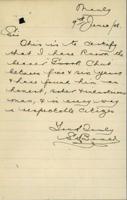 Manly
9th June /08
Sir
This is to certify
that I have known the
bearer Sook Chut
between five & six years
& have found him an
honest, sober & industrious
man, & in every way
a respectable citizen
Yours truly